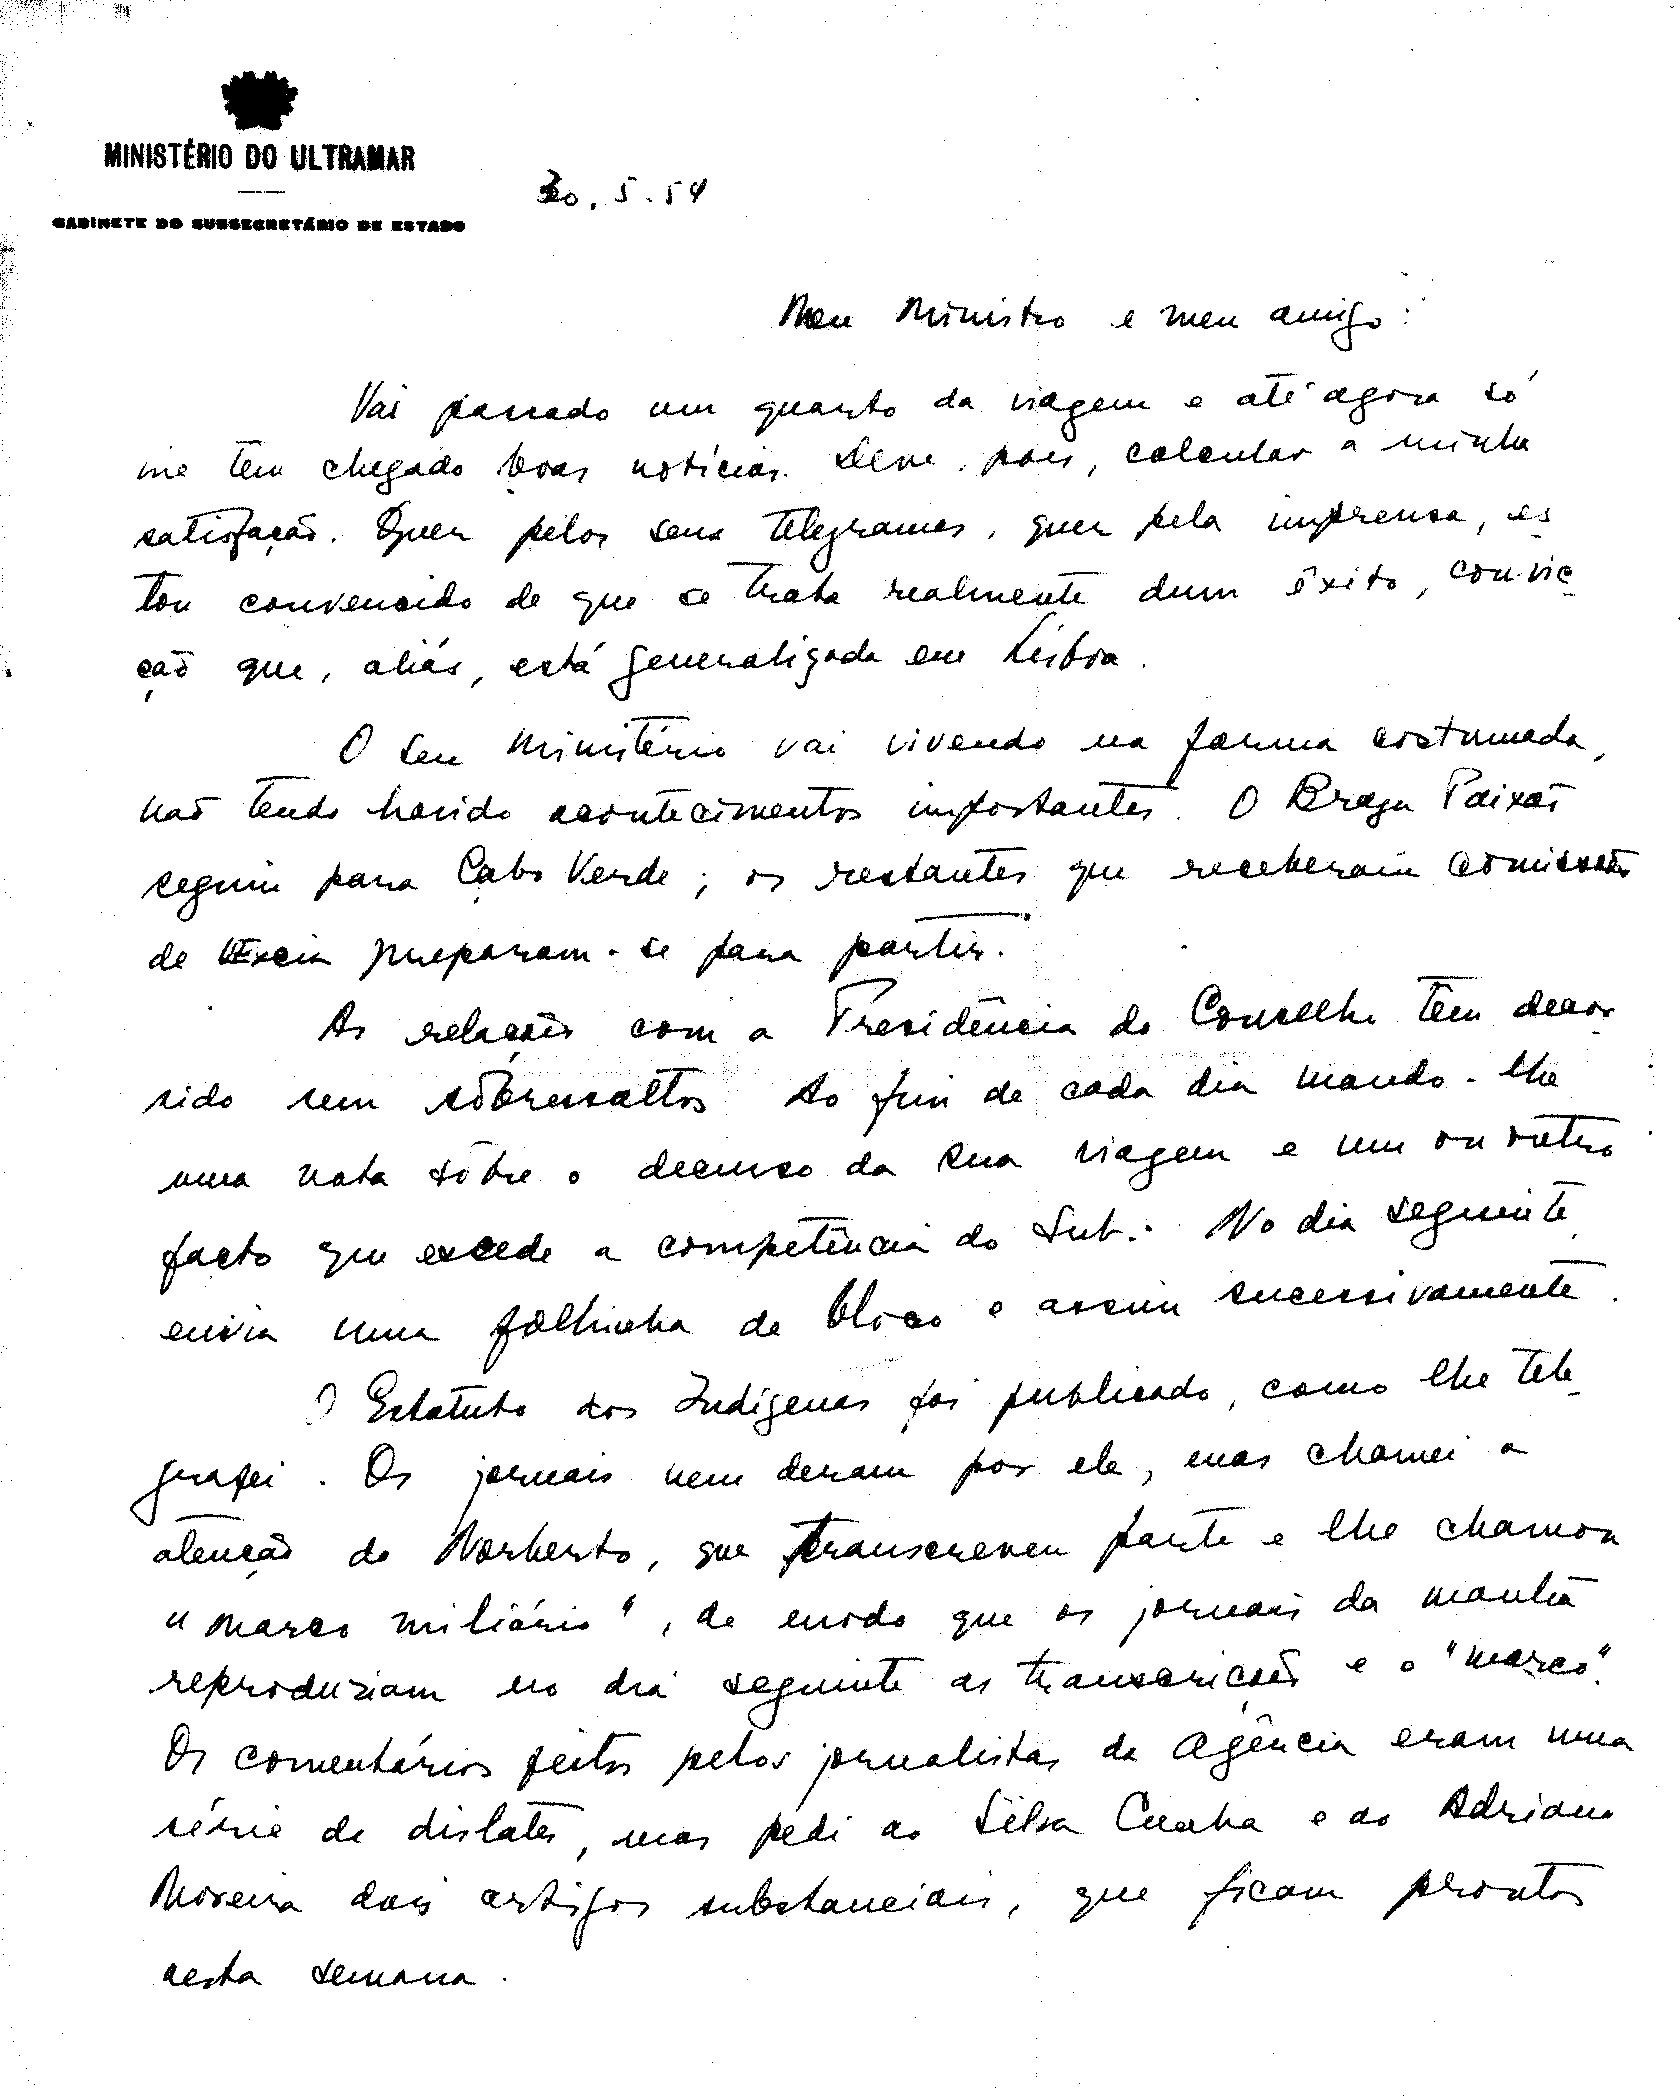 MINISTÉRIO DO ULTRAMAR
GABINETE DO SUBSECRETÁRIO DE ESTADO
30.5.54
Meu Ministro e meu amigo:
Vai passado um quarto da viagem e até agora só
me têm chegado boas notícias. Deve, pois, calcular a minha
satisfação. Quer pelos seus telegramas, quer pela imprensa, es
tou convencido de que se trata realmente dum êxito, convic
ção que, aliás, está generalizada em Lisboa.
O seu Ministério vai vivendo na forma costumada,
não tendo havido acontecimentos importantes. O Braga Paixão
seguiu para Cabo Verde; os restantes que receberam comissões
de VExcia preparam-se para partir.
As relações com a Presidência do Conselho têm decor
rido sem sôbressaltos. Ao fim de cada dia mando-lhe
uma nota sôbre o decurso da sua viagem e um ou outro
facto que excede a competência do Sub. No dia seguinte,
envia uma folhinha de bloco e assim sucessivamente.
O Estatuto dos Indígenas foi publicado, como lhe tele
grafei. Os jornais nem deram por ele, mas chamei a
atenção do Norberto, que transcreveu parte e lhe chamou
"marco miliário", de modo que os jornais da manhã
reproduziam no dia seguinte as transcrições e o "marco".
Os comentários feitos pelos jornalistas da Agência eram uma
série de dislates, mas pedi ao Silva Cunha e ao Adriano
Moreira dois artigos substanciais, que ficam prontos
nesta semana.